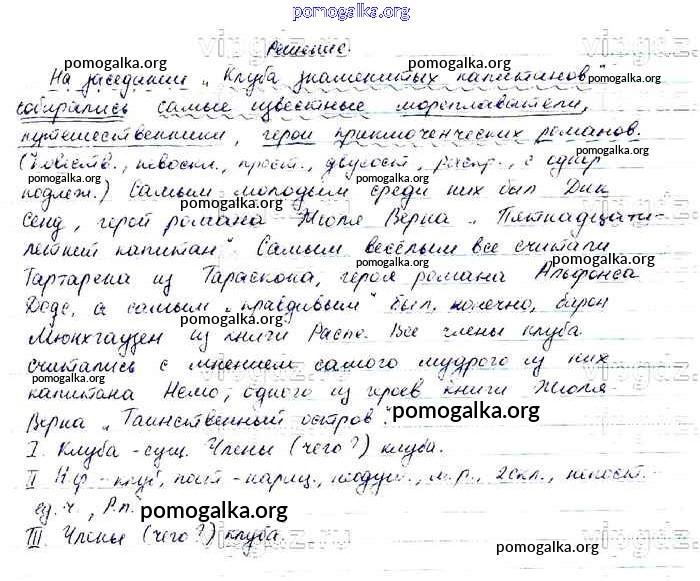 pomogalka.org
Решение.
На заседании „Клуба знаменитых капитанов"
собирались самые известные мореплаватели,
путешественники, герои приключенческих романов.
(Повеств., невоскл., прост., двусост., распр., с однор
подлеж.) Самым молодым среди них был Дик
Сенд, герой романа Жюля Верна „Пятнадцати-
летний капитан". Самым весёлым все считали
Тартарена из Тараскона, героя романа Альфонса
Доде, а самым „правдивым" был, конечно, барон
Мюнхгаузен из книги Распе. Все члены клуба
считались с мнением самого мудрого из них
капитана Немо, одного из героев книги Жюля
Верна „Таинственный остров".
I. Клуба - сущ. Члены (чего?) клуба.
II Н.ф. - клуб, пост - нариц., неодуш., м.р., 2 скл., непост. -
ед.ч., Р.п.
III. Члены (чего?) клуба.
pomogalka.org